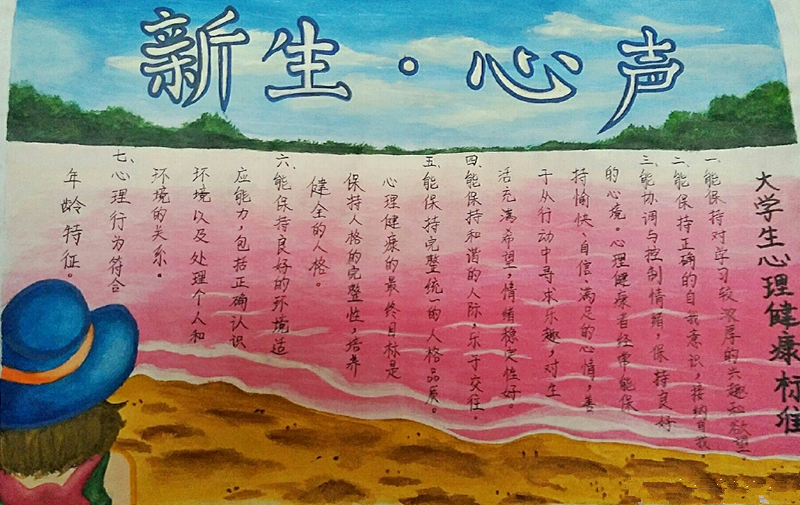 新生·心声
大学生心理健康标准
一、能保持对学习较浓厚的兴趣和欲望。
二、能保持正确的自我意识，接纳自我。
三、能协调与控制情绪，保持良好
的心境。心理健康者经常能保
持愉快、自信、满足的心情，善
于从行动中寻求乐趣，对生
活充满希望，情绪稳定性好。
四、能保持和谐的人际，乐于交往。
五、能保持完整统一的人格品质。
心理健康的最终目标是
保持人格的完整性，培养
健全的人格。
六、能保持良好的环境适
应能力，包括正确认识
环境以及处理个人和
环境的关系。
七、心理行为符合
年龄特征。